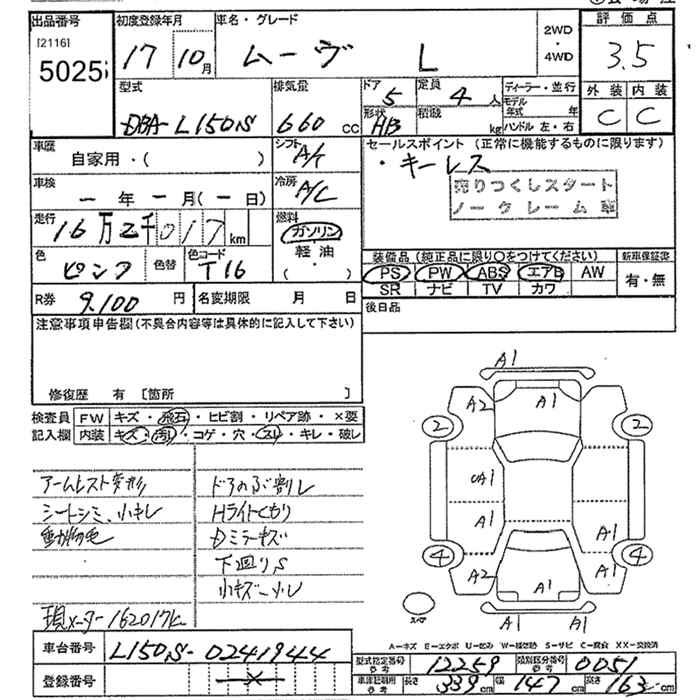 出品番号 初度登録年月 車名・グレード 2WD・4WD 評価点
[2116]
5025 17 10月 ムーヴ L 3.5
外装 内装
C C
型式 排気量 ドア 定員 ディーラー・並行
DBA-L150S 660cc 5 4人 モデル年式 年
形状 積載 ハンドル 左・右
HB kg
車歴 シフト セールスポイント (正常に機能するものに限ります)
自家用・( ) A/T ・キーレス
車検 冷房 売りつくしスタート
ー年ー月(ー日) A/C ノークレーム車
走行 燃料
16万2千017km ガソリン
軽油
( ・ )
色 色替 色コード 装備品 (純正品に限り○をつけてください) 新車保証書
ピンク T16 PS PW ABS エアB AW 有・無
SR ナビ TV カワ
R券 9,100円 名変期限 月 日 後日品
注意事項申告欄(不具合内容等は具体的に記入して下さい)
修復歴 有 [箇所 ]
検査員 FW キズ・飛石・ヒビ割・リペア跡・×要
記入欄 内装 キズ・汚レ・コゲ・穴・スレ・キレ・破レ
アームレスト変形 ドアのぶ割レ
シートシミ、小キレ Hライトくもり
動物毛 Dミラーキズ
下廻りS
小キズ・小レ
現メーター162017K
A1
A2 A1
2 2
UA1
A1 A1
4 4
A2 A1 A1
スペア A1 A1
A=キズ E=エクボ U=凹み W=補修跡 S=サビ C=腐食 XX=交換済
車台番号 L150S-0241944 型式指定番号 参考 12259 類別区分番号 参考 0051
登録番号 車庫証明用 参考 長さ 339cm 幅 147cm 高さ 163cm